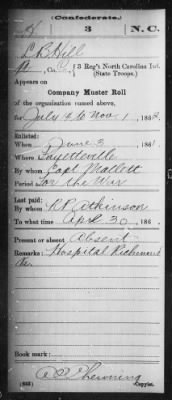 (Confederate.)
H 3 N.C.
L B Hill
Co. 3 Reg't North Carolina Inf.
(State Troops.)
Appears on
Company Muster Roll
of the organization named above,
for July & to Nov 1, 186
Enlisted:
When June 3, 186
Where Fayetteville
By whom Capt Mallett
Period for the War
Last paid:
By whom R P Atkinson
To what time Apr 30, 186
Present or absent Absent
Remarks: Hospital Richmond
Va.
Book mark:
(642) Copyist.